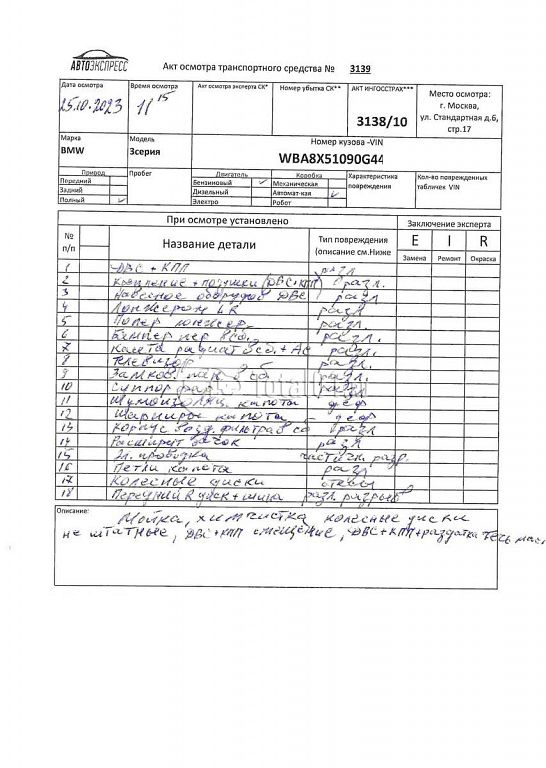 АВТОЭКСПРЕСС
Акт осмотра транспортного средства № 3139
Дата осмотра
25.10.2023
Время осмотра
11 15
Акт осмотра эксперта СК*
Номер убытка СК**
АКТ ИНГОССТРАХ***
3138/10
Место осмотра:
г. Москва,
ул. Стандартная д.6,
стр.17
Марка
BMW
Модель
3серия
Номер кузова -VIN
WBA8X51090G44
Привод
Передний
Задний
Полный
Пробег
Двигатель
Бензиновый
Дизельный
Электро
Коробка
Механическая
Автомат-кая
Робот
Характеристика
повреждения
Кол-во поврежденных
табличек VIN
При осмотре установлено
Заключение эксперта
№
п/п
Название детали
Тип повреждения
(описание см.Ниже
E I R
Замена Ремонт Окраска
1 ДВС + КПП разл
2 крепление + подушки (ДВС+КПП) разл.
3 Навесное оборудов ДВС разл
4 Лонжерон разл
5 разл.
6 Бампер пер в сб. разл.
7 Кассета радиат в сб. + АС разл.
8 Телевизор разл.
9 разл.
10 суппор фар разл
11 Шумоизоляц. капота деф
12 Шарниры капота деф
13 корпус возд. фильтра в сб разл
14 Расширит бачок разл
15 Эл. проводка частичн разр.
16 Петли капота разл
17 Колесные диски
18 Передний диск + шина разл. разрыв
Описание:
Мойка, химчистка колесные диски
не штатные, ДВС+КПП смещение, ДВС+КПП+раздатка течь мас